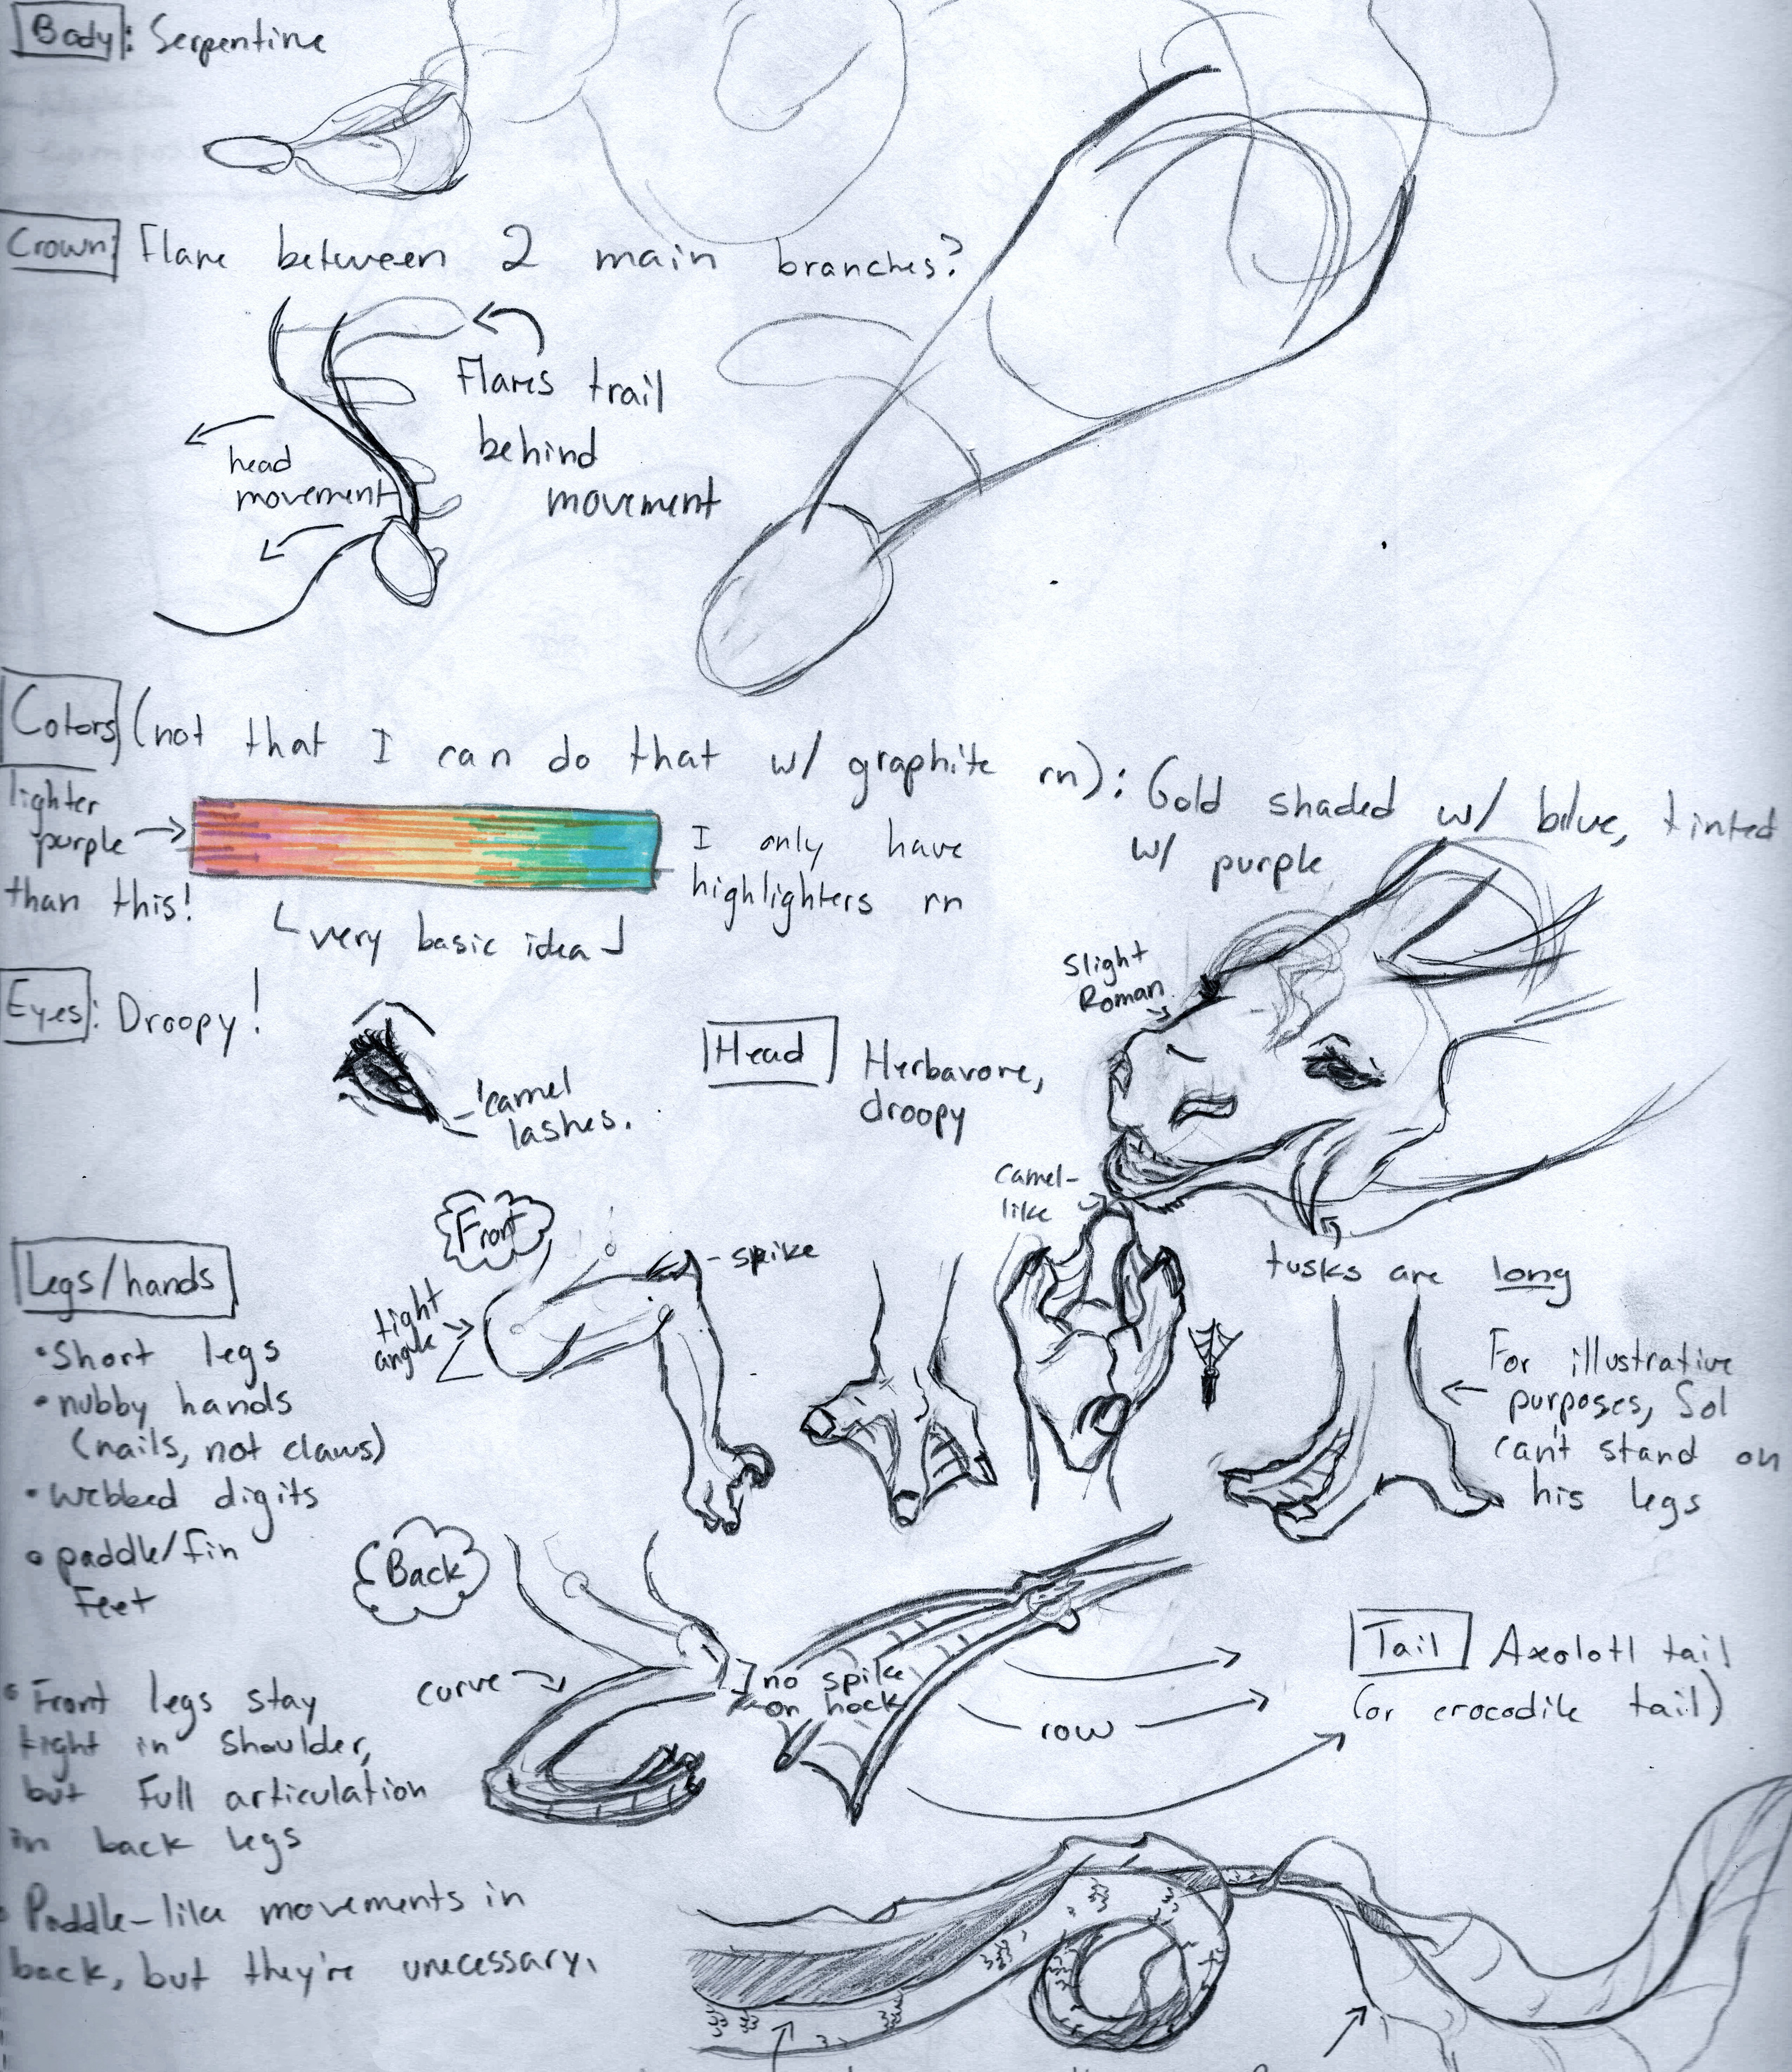 Body: Serpentine
Crown: Flare between 2 main branches?
Flares trail
behind
movement
head
movement
Colors (not that I can do that w/ graphite rn): Gold shaded w/ blue, tinted
w/ purple
lighter
purple
than this!
I only have
highlighters rn
very basic idea
Eyes: Droopy!
camel
lashes.
Head
Herbavore,
droopy
Slight
Roman
Camel-
like
tusks are long
Legs/hands
• Short legs
• nubby hands
(nails, not claws)
• Webbed digits
• paddle/fin
Feet
• Front legs stay
tight in shoulder,
but full articulation
in back legs
• Paddle-like movements in
back, but they're unecessary.
Front
tight
angle
spike
For illustrative
purposes, Sol
can't stand on
his legs
Back
curve
no spike
on hock
row
Tail Axolotl tail
(or crocodile tail)